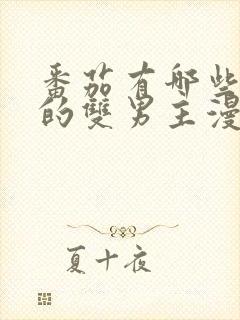 番茄有哪些
的雙男主漫
夏十夜